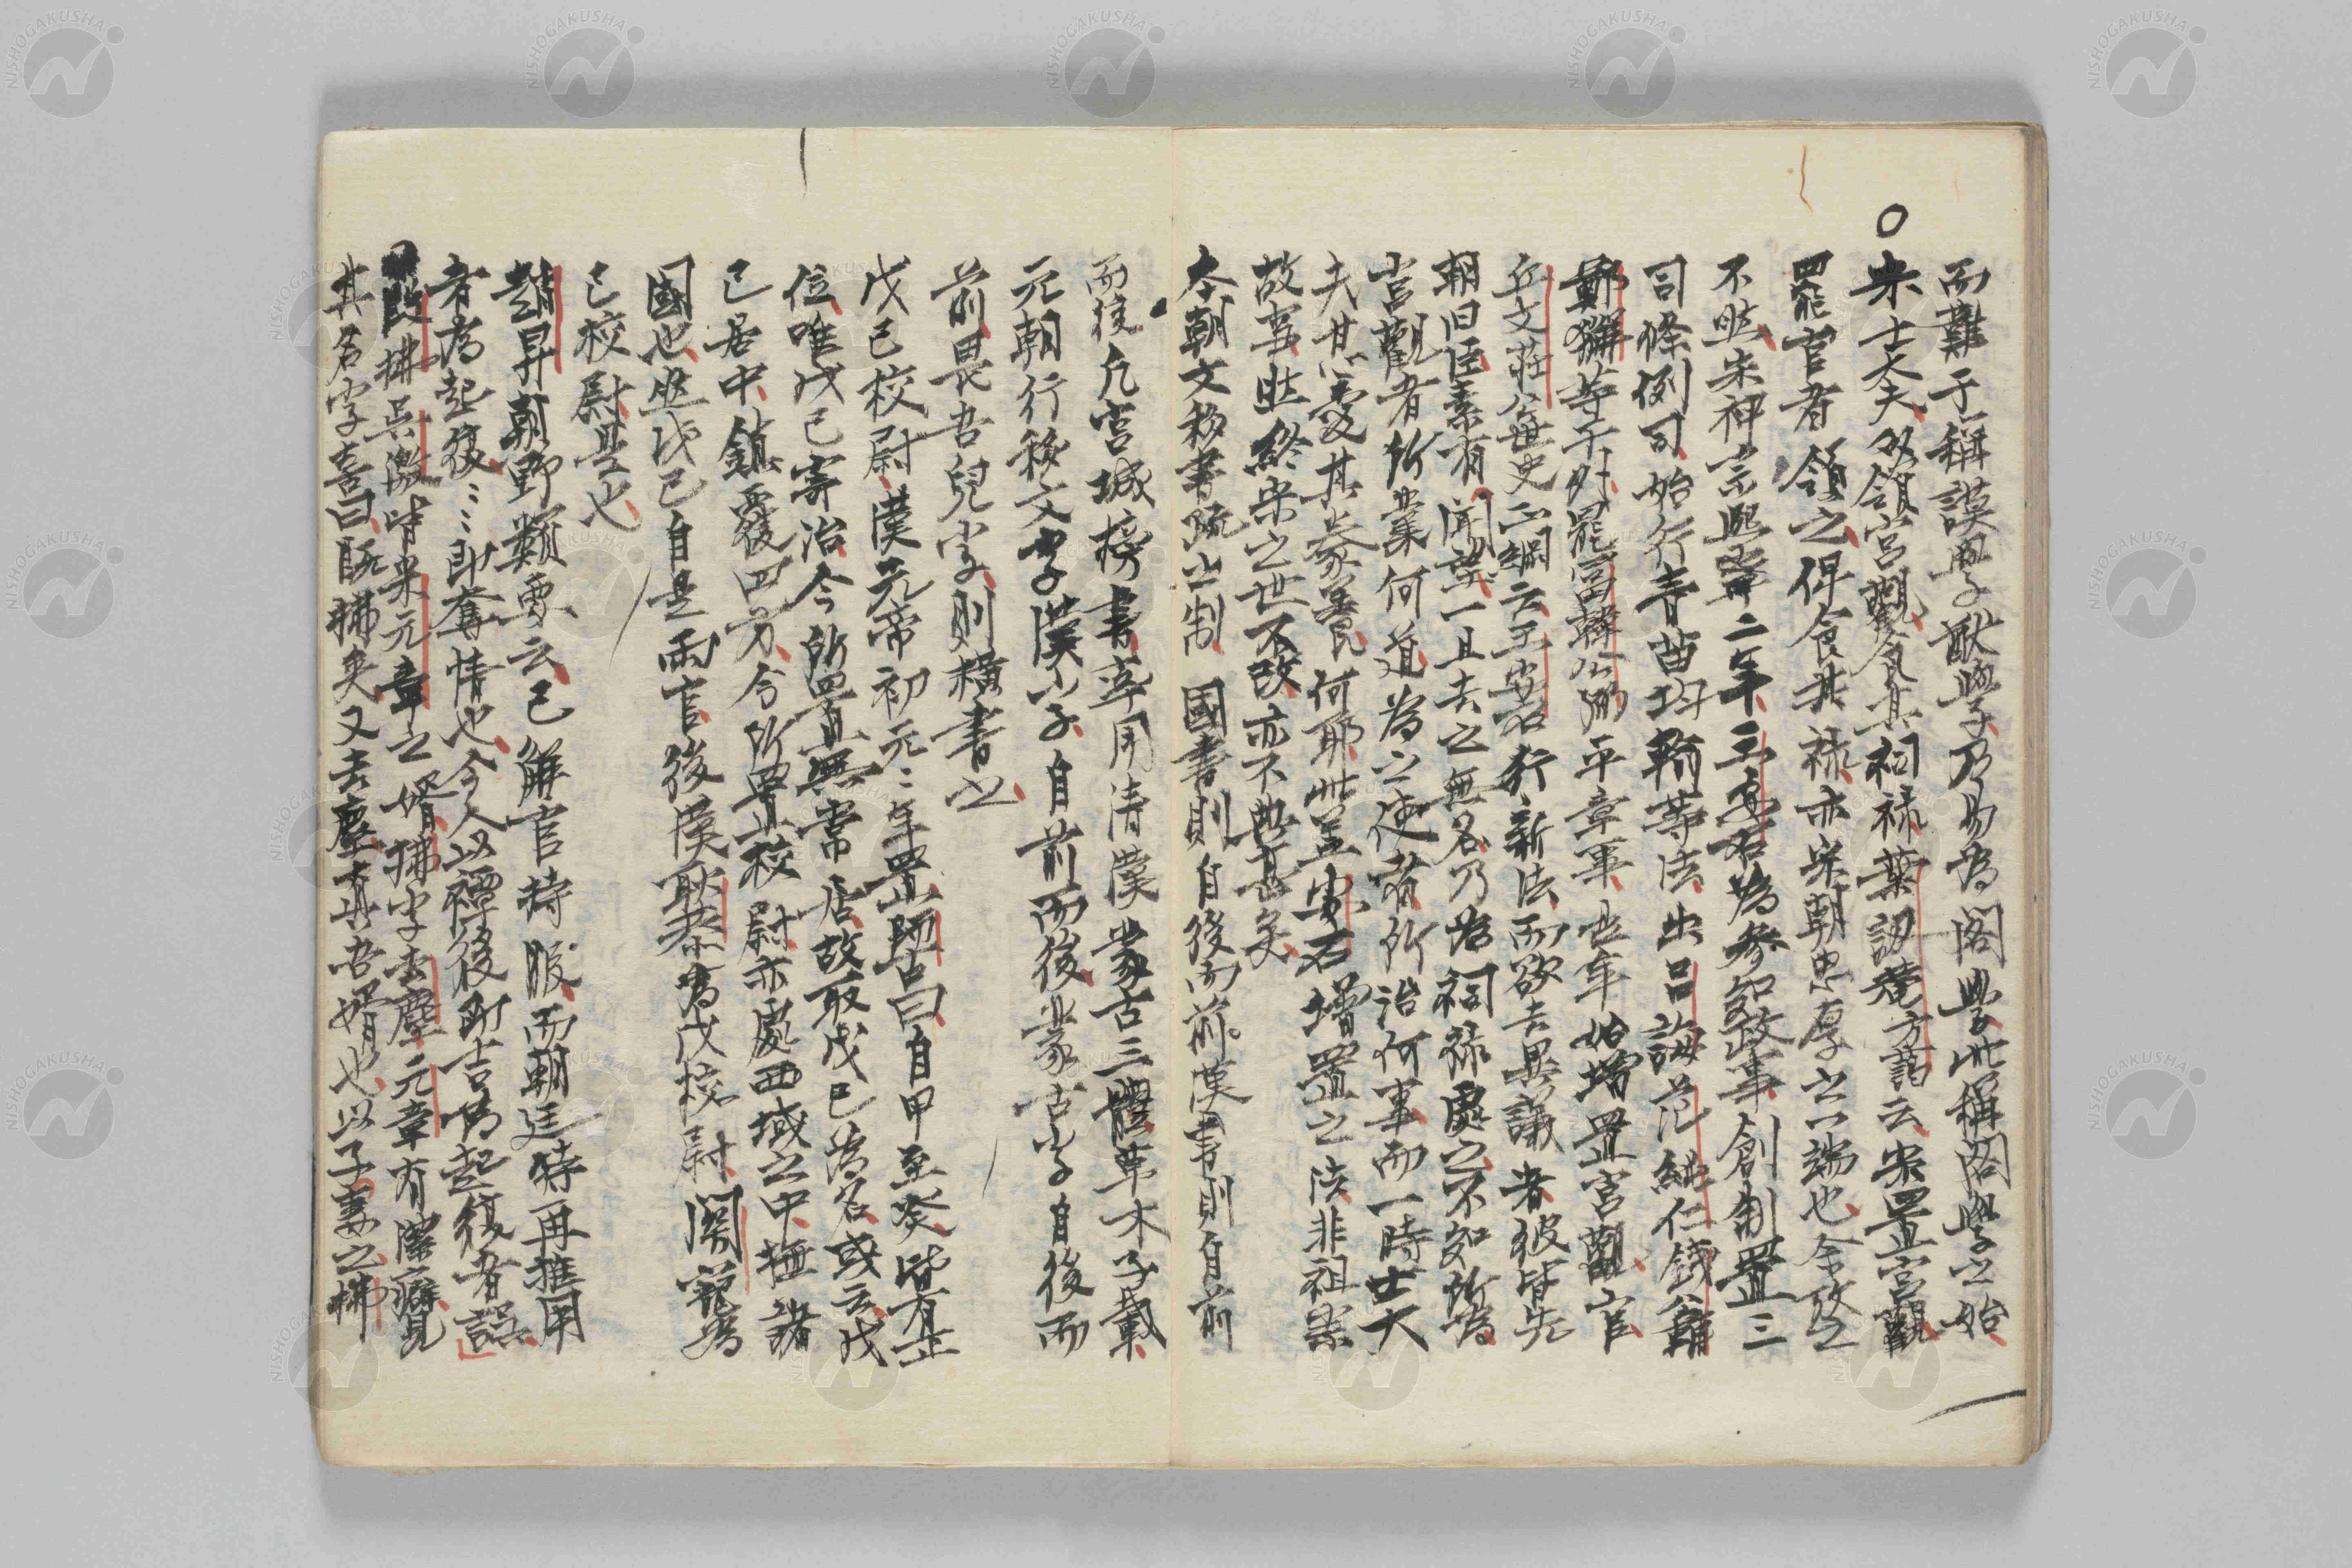 而難于稱謨學猷學乃易為閣學此稱閣學之始
○宋士大夫多領宮觀食其祠禄葉韶菴方藹云宋置宮觀
罷官者領之俾食其禄亦宋朝忠厚之一端也余攷之
不然宋神宗熙寧二年王安石為參知政事創制置三
司條例司始行青苗均輸等法出呂誨范純仁錢公輔
鄭獬等于外罷富韓公弼平章軍也年始增置宮觀官
丘文莊公世史正綱云王安石行新法而欲去異議者彼皆先
朝旧臣素有聞望一旦去之無名乃為祠禄處之不知所為
宮觀者所業何道為之使者所治何事而一時士大
夫甘心受其豢養何耶此蓋安石增置之法非祖宗
故事然終宋之世不改亦不典甚矣
本朝文移書疏之制 國書則自後而前漢書則自前
而後凡宮城榜書率用清漢蒙古三體草木子載
元朝行移文字漢字自前而後蒙古字自後而
前畏吾兒字則橫書之
戊己校尉漢元帝初元二年置師古曰自甲至癸皆有正
位唯戊己寄治今所置無常居故取戊己為名或云戊
己居中鎮覆四方今所置校尉亦處西域之中撫諸
國也然戊己自是兩官後漢耿恭為戊校尉關寵為
己校尉是也
趙昇朝野類要云已解官持服而朝廷特再推用
者為起復〻〻即奪情也今人以禫後即吉為起復者誤
段拂吳激皆米元章之婿拂字去塵元章有潔癖見
其名字喜曰既拂矣又去塵真吾婿也以子妻之拂
NISHOGAKUSHA